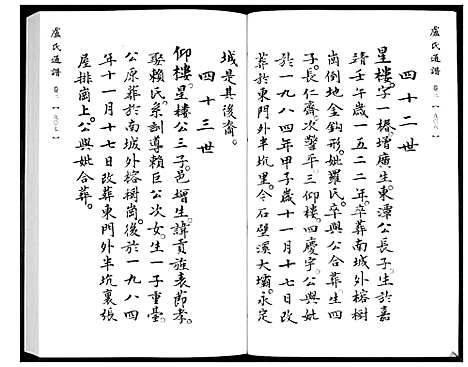 盧氏通譜
卷三
一九〇六
四十二世
星樓。字一椿。增廣生。東潭公長子。生於嘉
靖壬午歲一五二二年。卒葬南城外榕樹
崗倒地金鈎形。妣羅氏。卒與公合葬。生四
子。長仁齋。次肇平。三仰樓。四慶宇。公與妣
於一九八四年甲子歲十一月十七日改
葬於東門外半坑里。今石壁溪大壩。永定
城是其後裔。
四十三世
仰樓。星樓公三子。邑增生。諱貢旌表節孝。
娶賴氏。系訓導賴巨公次女。生一子重臺。
公原葬於南城外榕樹崗。後於一九八四
年十一月十七日改葬東門外半坑裏張
屋排崗上。公與妣合葬。
盧氏通譜
卷三
一九〇七